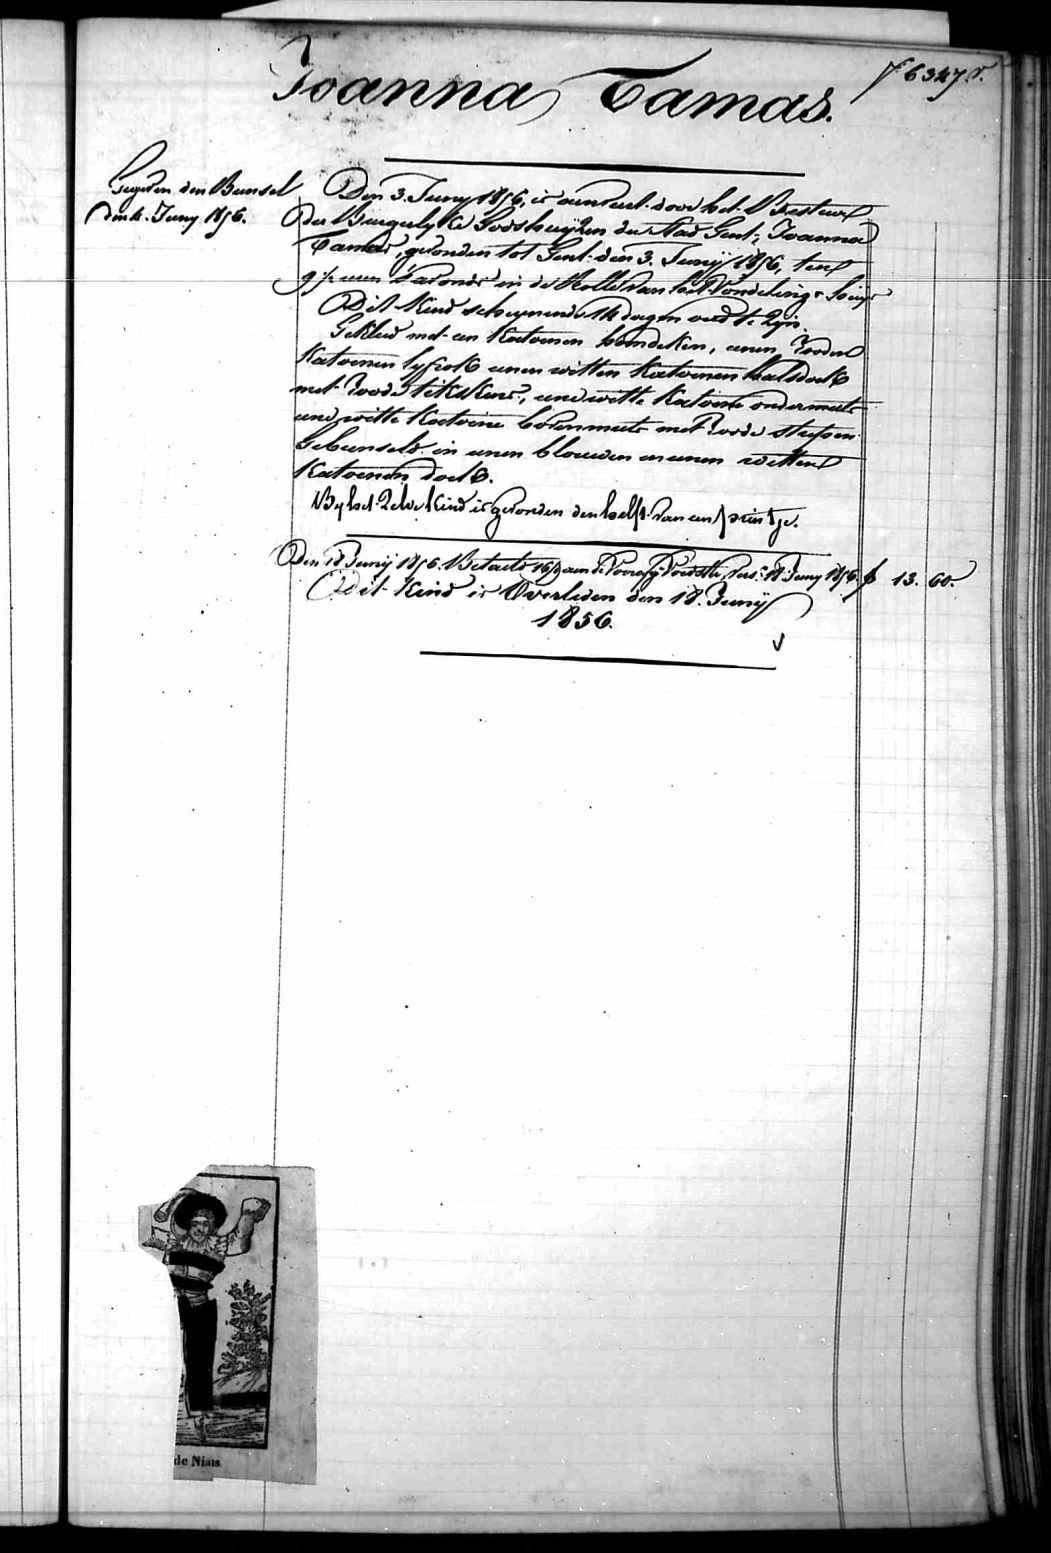 Joanna Tamas.
N° 6347 v.
Gegeven den Bunsel
den 4. Juny 1856.
Den 3. Juny 1856, is aenveerd door het Bestuer
der Burgerlyke Godshuyzen der Stad Gent, Joanna
Tamas, gevonden tot Gent den 3. Junij 1856, ten
9 1/2 uren 's avonds in de Rolle van het Vondelings-huys
Dit Kind schynende 14 dagen oud te zyn
Gekleed met een Katoenen hemdeken, eenen rooden
Katoenen lyfrok eenen witten Katoenen halsdoek
met roode tikskens, eene witte Katoene ondermuts
eene witte Katoene bovenmuts met roode strepen
Gebunseld in eenen blauwen en eenen witten
Katoenen doek.
By het zelve Kind is gevonden den helft van een printje.
Den 18 Junij 1856. Betaeld aen de Voedster 18 Juny 1856. f 13. 60.
Dit Kind is Overleden den 18. Junij
1856.
de Niais